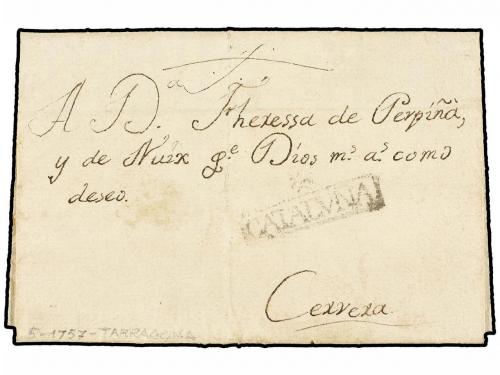 A D.ª Theressa de Perpiñá,
y de Nuix g.e Dios m.s a.s como
deseo.
CATALVÑA
Cervera
5-1757-TARRAGONA